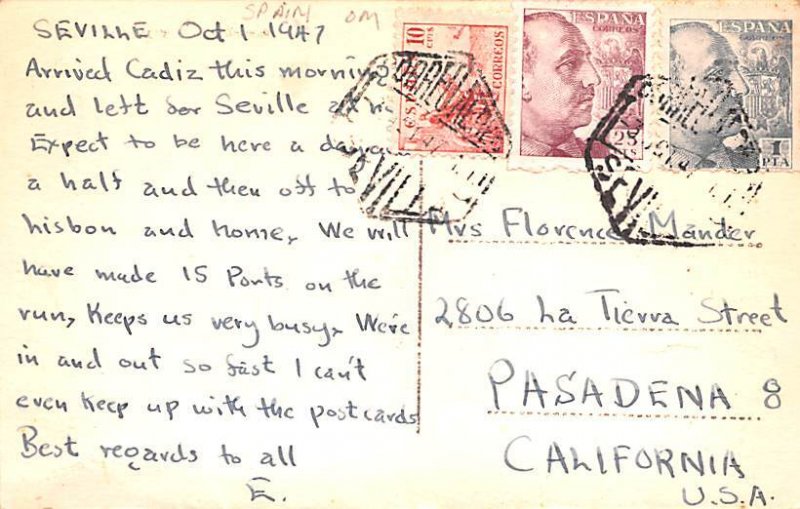 SPAIN OM
SEVILLE Oct 1 1947
Arrived Cadiz this morning
and left for Seville at
Expect to be here a day and
a half and then off to
Lisbon and home. We will
have made 15 Ports on the
run, Keeps us very busy. We're
in and out so fast I can't
even keep up with the postcards
Best regards to all
E.
10
CTS
CORREOS
ESPAÑA
CORREOS
25
CTS
ESPAÑA
CORREOS
1
PTA
SEVILLA
SEVILLA
Mrs Florence Mander
2806 La Tierra Street
PASADENA 8
CALIFORNIA
U.S.A.